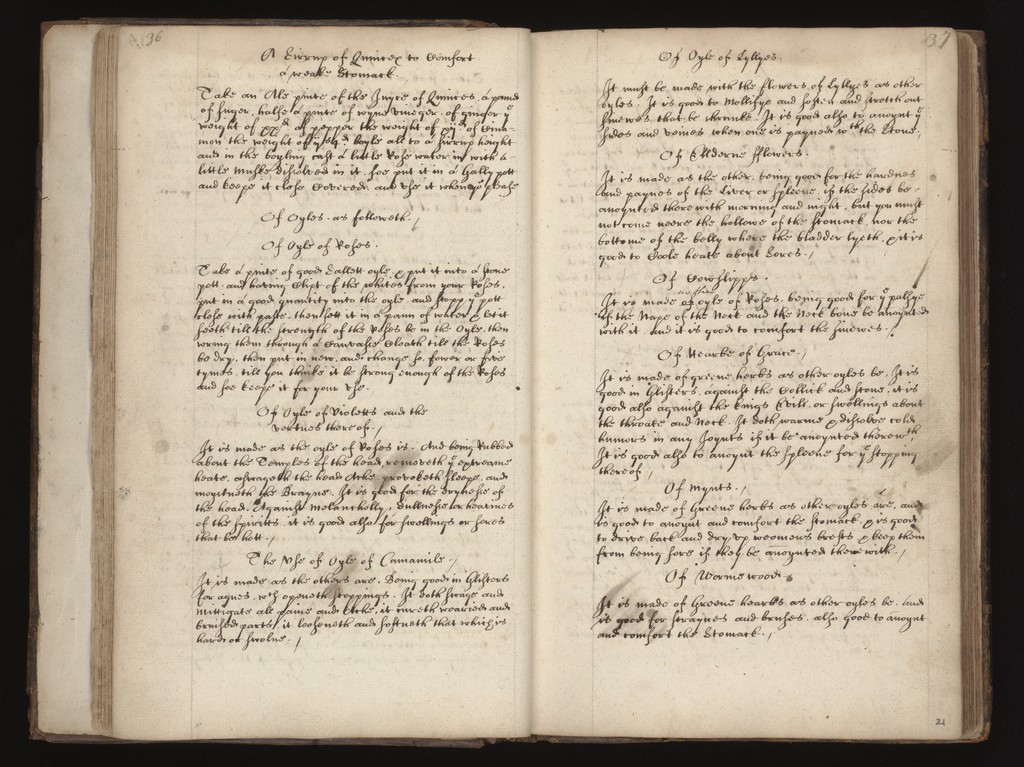 36
A Sirrup of Quinces to Comfort
a weake Stomack.
Take an Ale pinte of the Juyce of Quinces, a pound
of Suger, halfe a pinte of wyne vineger, of ginger yͤ
weight of of pepper the weight of of Cina-
mon the weight of boyle all to a sirrup height
and in the boyling cast a little Rose water in with a
little Muske disolved in it. soe put it in a Gally pott
and keepe it close Covered. and use it when yͧ please
Of Oyles. as followeth. /
Of Oyle of Roses.
Take a pinte of good Sallett oyle, & put it into a stone
pott. and having Clipt of the whites from your Roses,
put in a good quantity into the oyle. and stopp yͤ pott
close with paste. then sett it in a pann of water & let it
seeth till the strength of the Roses be in the Oyle. then
wring them through a Canvasse Cloath till the Roses
be dry. then put in new. and change so, fower or five
tymes, till you thinke it be strong enough of the Roses
and soe keepe it for your use.
Of Oyle of Violetts and the
vertues thereof. /
It is made as the oyle of Roses is. And being Rubbed
about the Temples of the head, removeth yͤ extreame
heate, asswageth the head Ache, provoketh sleepe, and
moystneth the Brayne. It is good for the drynesse of
the head. Against Melancholly, Dullnesse or heavines
of the Spiritts. it is good also for swellings or sores
that be hott. /
The Use of Oyle of Camamile. /
It is made as the others are. Being good in Glisters
for agues. wᶜʰ openeth stoppings. It doth swage and
mittigate all paine and Ache, it cureth wearied and
brused parts, it looseneth and softneth that which is
hard or swolne. /
37
Of Oyle of Lyllyes.
It must be made with the flowers of Lyllyes as other
oyles. It is good to Mollifye and soften and stretch out
sinewes that be shrunke. It is good also to anoynt yͤ
sides and veines when one is payned wᵗʰ the Stone.
Of Elderne fflowers.
It is made as the other. being good for the hardnes
and paynes of the Liver or Spleene. if the sides be
anoynted therewith morning and night, but you must
not come neere the hollowe of the stomack, nor the
bottome of the belly where the bladder lyeth. & it is
good to Coole heate about sores. /
Of Cowslipps.
It is made as the oyle of Roses. being good for yͤ pallsye
if the Nape of the Neck and the Neck bone be anoynted
with it. and it is good to comfort the sinewes. /
Of Hearbe of Grace. /
It is made of greene herbs as other oyles be. It is
good in Glisters, against the Collick and stone. it is
good also against the Kings Evill. or swellings about
the throate and Neck. It doth warme & dissolve cold
humors in any Joynts if it be anoynted therewᵗʰ
It is good also to anoynt the Spleene for yͤ stopping
thereof. /
Of Mynts. /
It is made of Greene herbs as other oyles are, and
is good to anoynt and comfort the stomack. & is good
to drive back and dry up weomens brests & keep them
from being sore if they be anoynted therewith. /
Of Wormewood.
It is made of Greene hearbs as other oyles be. and
is good for straynes and bruses. also good to anoynt
and comfort the Stomack. /
21